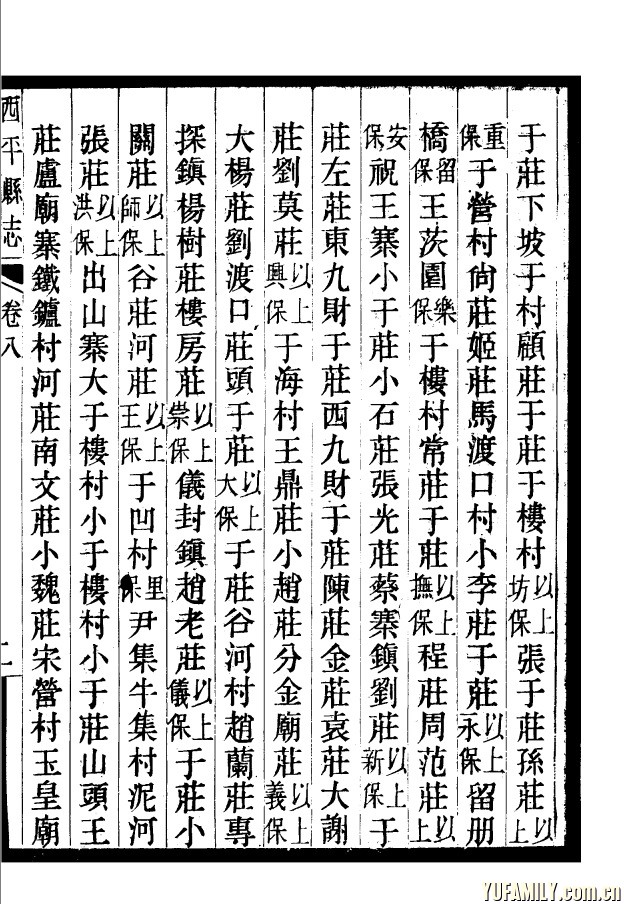 于莊下坡于村顧莊于莊于樓村以上坊保張于莊孫莊以上
重保于營村尙莊姬莊馬渡口村小李莊于莊以上永保留册
橋留保王茨園樂保于樓村常莊于莊以上撫保程莊周范莊以上
安保祝王寨小于莊小石莊張光莊蔡寨鎮劉莊以上新保于
莊左莊東九財于莊西九財于莊陳莊金莊袁莊大謝
莊劉莫莊以上興保于海村王鼎莊小趙莊分金廟莊以上義保
大楊莊劉渡口莊頭于莊以上大保于莊谷河村趙蘭莊專
探鎮楊樹莊樓房莊以上崇保儀封鎮趙老莊以上儀保于莊小
關莊以上師保谷莊河莊以上王保于凹村里保尹集牛集村泥河
張莊以上洪保出山寨大于樓村小于樓村小于莊山頭王
莊盧廟寨鐵鑪村河莊南文莊小魏莊宋營村玉皇廟
西平縣志 卷八
YUFAMILY.com.cn